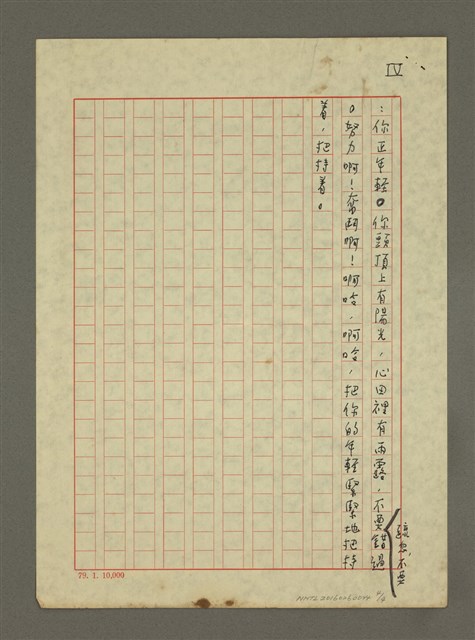 IV
：你正年輕。你頭頂上有陽光，心田裡有雨露，不要錯過
。努力啊！奮鬥啊！啊哈，啊哈，把你的年輕緊緊地把持
着，把持着。
不要
79. 1. 10,000